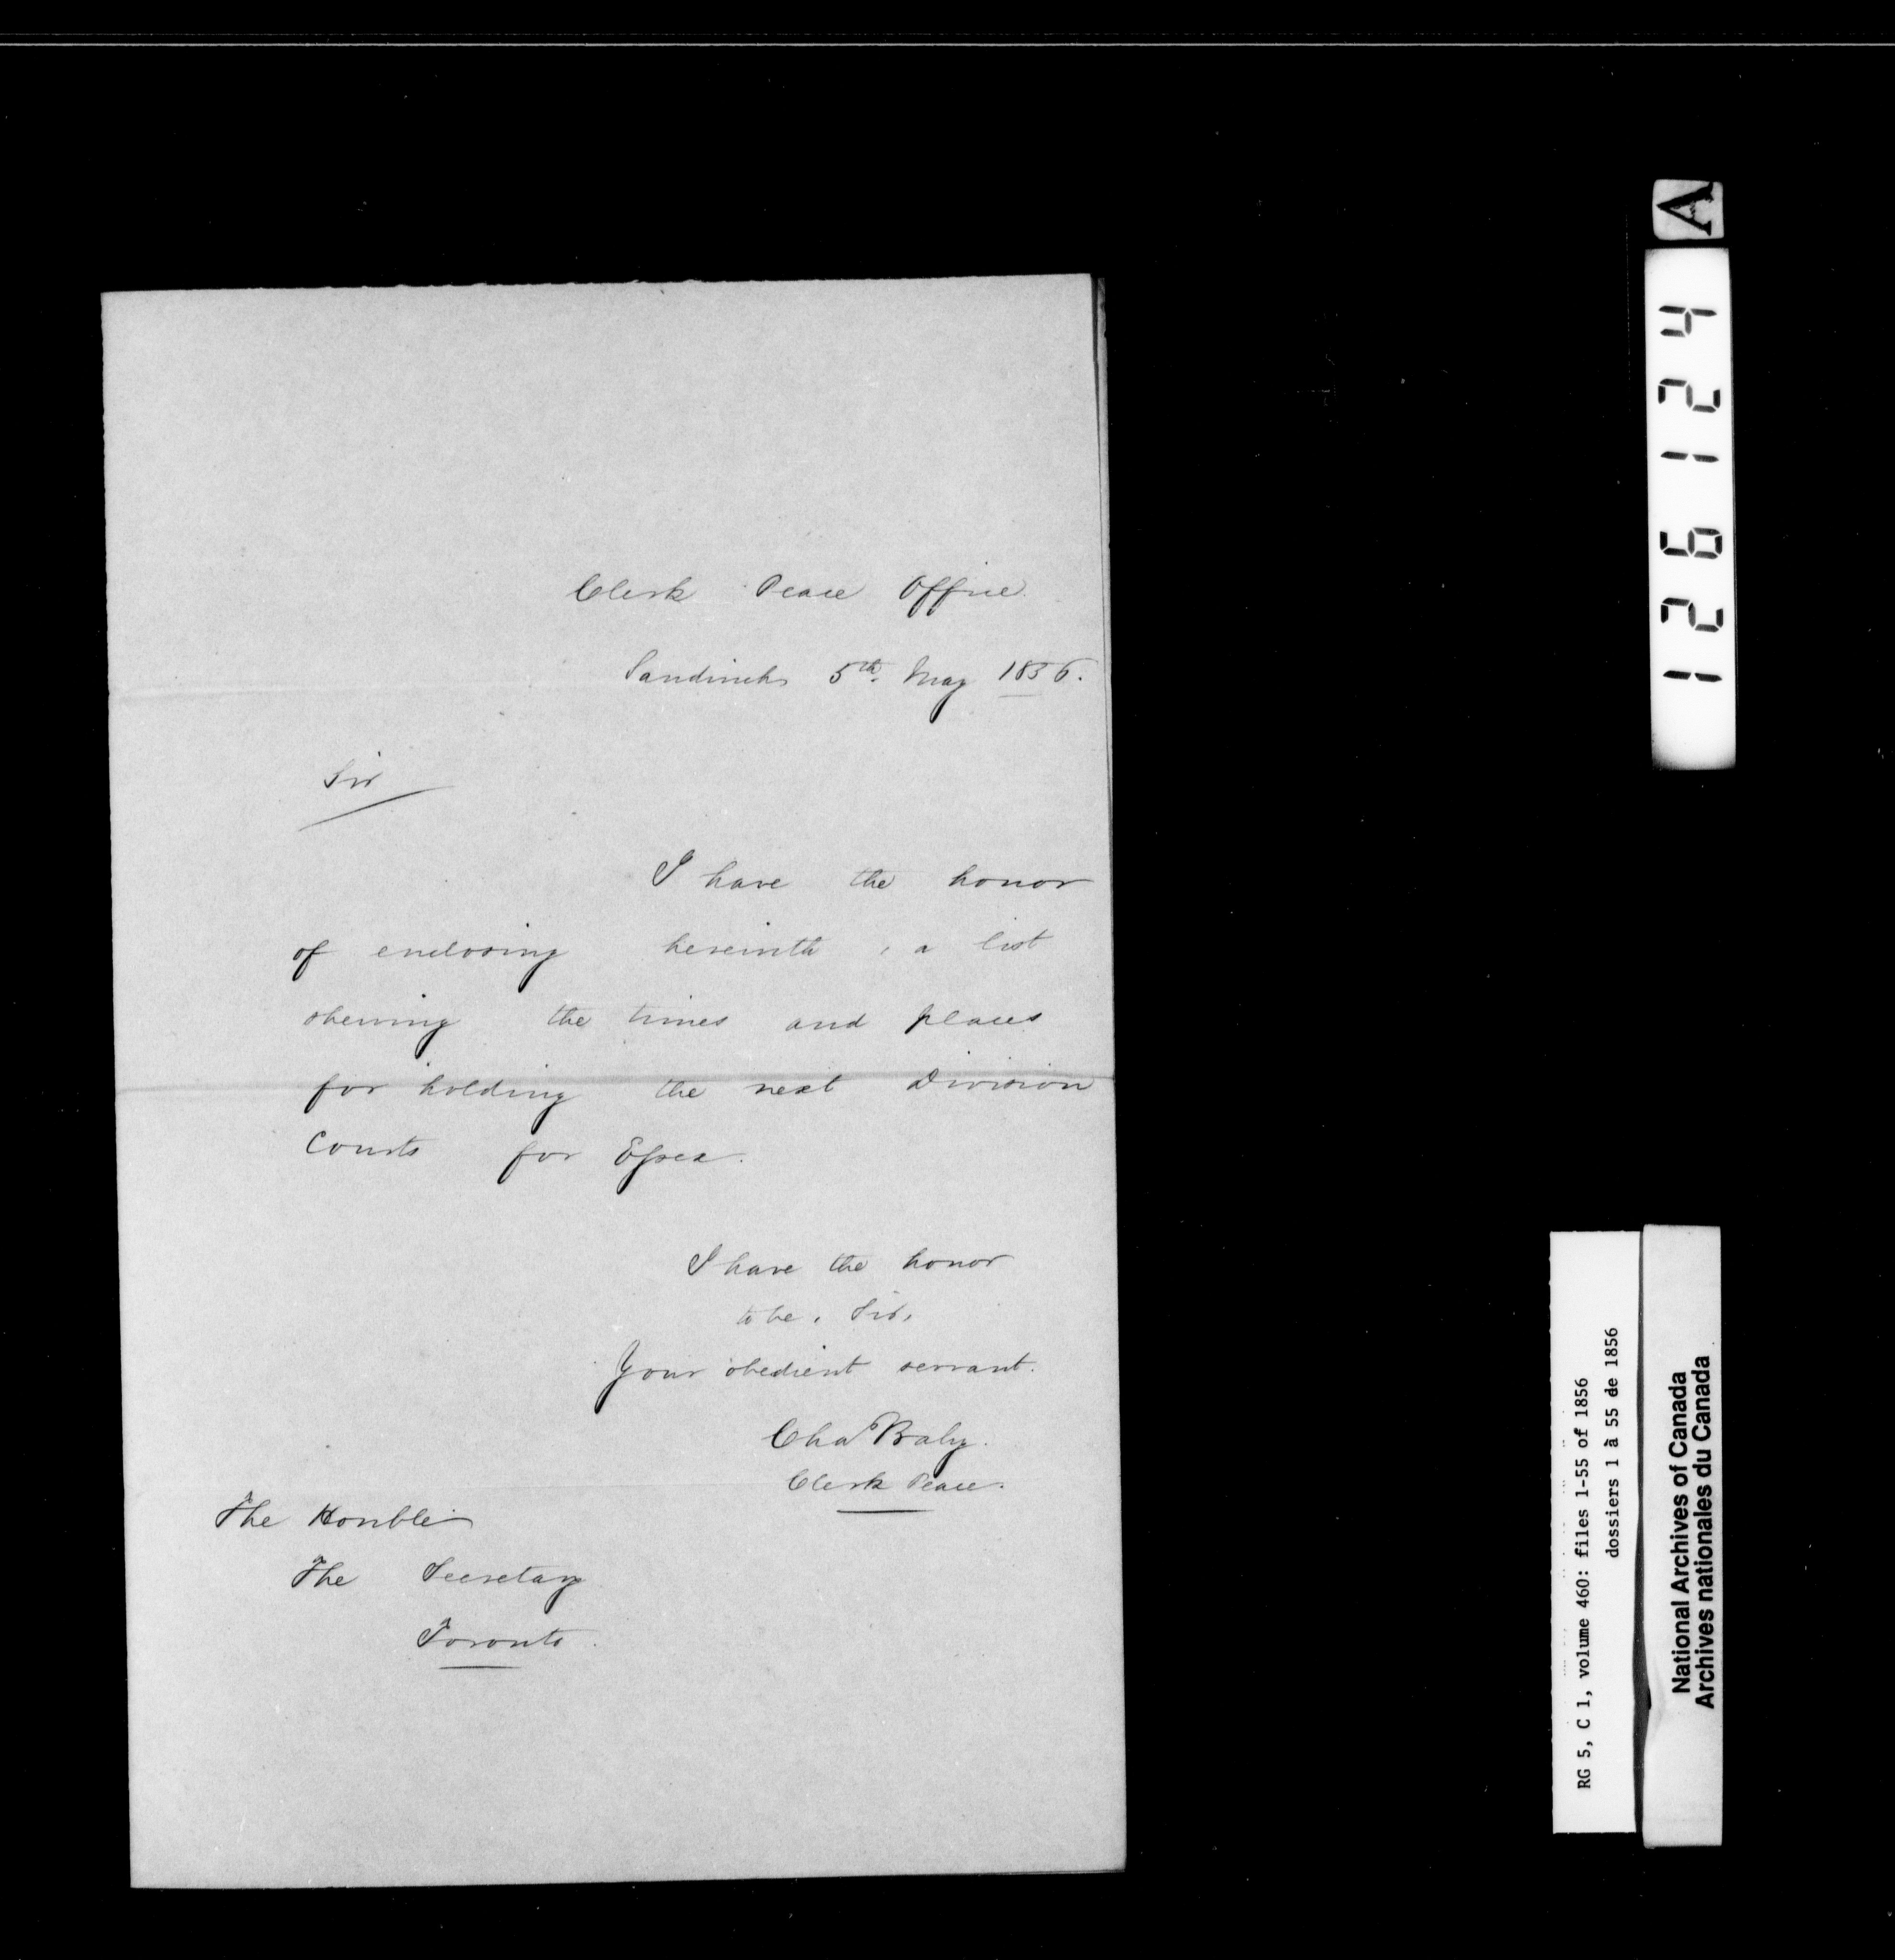 Clerk Peace Office
Sandwich 5th. May 1856.
Sir
I have the honor
of enclosing herewith, a list
shewing the times and places
for holding the next Division
Courts for Essex.
I have the honor
to be, Sir,
Your obedient servant.
Cha Baby.
Clerk Peace.
The Honble
The Secretary
Toronto.
A
126124
RG 5, C 1, volume 460: files 1-55 of 1856
dossiers 1 à 55 de 1856
National Archives of Canada
Archives nationales du Canada